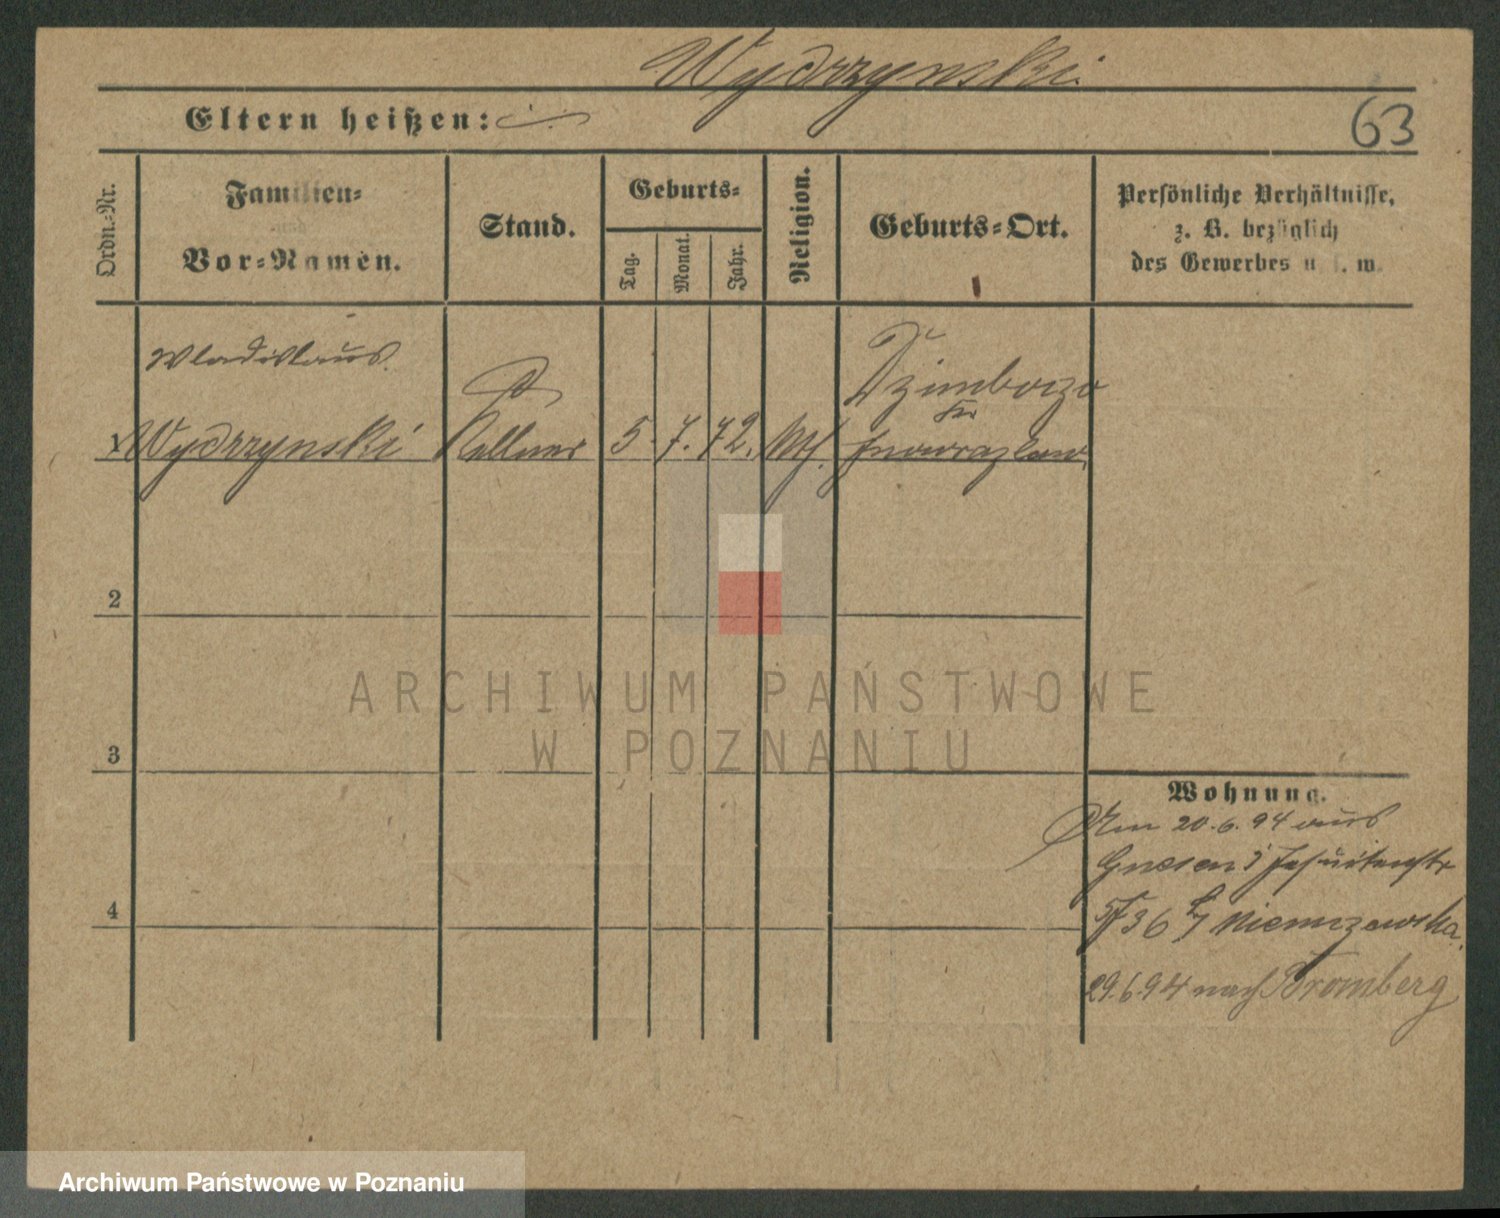 Wydrzynski.
Eltern heißen:
63
Ordn.-Nr.
Familien-
und
Vor-Namen.
Stand.
Geburts-
Tag.
Monat.
Jahr.
Religion.
Geburts-Ort.
Persönliche Verhältnisse,
z. B. bezüglich
des Gewerbes u. s. w.
1
Wladislaus
Wydrzynski
Kellner
5. 7. 72.
Kr
Inowrazlaw
2
3
4
ARCHIWUM PAŃSTWOWE
W POZNANIU
Wohnung.
Am 20.6.94 aus
Gnesen Jesuitenstr
5 36 Niemczewska.
29.6.94 nach Bromberg
Archiwum Państwowe w Poznaniu